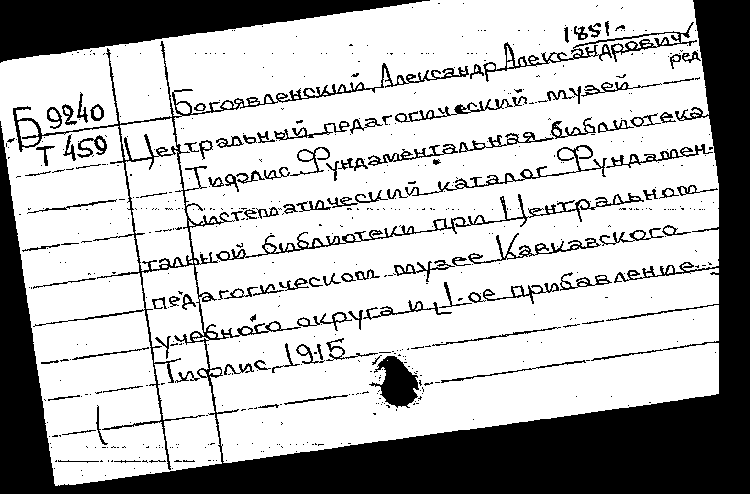 1851-
Богоявленский, Александр Александрович,
ред
Б 9240
Т 459
Центральный педагогический музей.
Тифлис. Фундаментальная библиотека.
Систематический каталог Фундамен-
тальной библиотеки при Центральном
педагогическом музее Кавказского
учебного округа и 1-ое прибавление.
Тифлис, 1915.